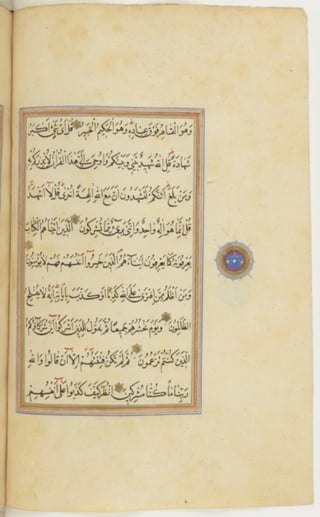 وَهُوَ الْقَاهِرُ فَوْقَ عِبَادِهِ وَهُوَ الْحَكِيمُ الْخَبِيرُ قُلْ أَيُّ شَيْءٍ أَكْبَرُ
شَهَادَةً قُلِ اللهُ شَهِيدٌ بَيْنِي وَبَيْنَكُمْ وَأُوحِيَ إِلَيَّ هَذَا الْقُرْآنُ لِأُنْذِرَكُمْ بِهِ
وَمَنْ بَلَغَ أَئِنَّكُمْ لَتَشْهَدُونَ أَنَّ مَعَ اللهِ آلِهَةً أُخْرَى قُلْ لَا أَشْهَدُ
قُلْ إِنَّمَا هُوَ إِلَهٌ وَاحِدٌ وَإِنَّنِي بَرِيءٌ مِمَّا تُشْرِكُونَ الَّذِينَ آتَيْنَاهُمُ الْكِتَابَ
يَعْرِفُونَهُ كَمَا يَعْرِفُونَ أَبْنَاءَهُمُ الَّذِينَ خَسِرُوا أَنْفُسَهُمْ فَهُمْ لَا يُؤْمِنُونَ
وَمَنْ أَظْلَمُ مِمَّنِ افْتَرَى عَلَى اللهِ كَذِبًا أَوْ كَذَّبَ بِآيَاتِهِ إِنَّهُ لَا يُفْلِحُ
الظَّالِمُونَ وَيَوْمَ نَحْشُرُهُمْ جَمِيعًا ثُمَّ نَقُولُ لِلَّذِينَ أَشْرَكُوا أَيْنَ شُرَكَاؤُكُمُ
الَّذِينَ كُنْتُمْ تَزْعُمُونَ ثُمَّ لَمْ تَكُنْ فِتْنَتُهُمْ إِلَّا أَنْ قَالُوا وَاللهِ
رَبِّنَا مَا كُنَّا مُشْرِكِينَ انْظُرْ كَيْفَ كَذَبُوا عَلَى أَنْفُسِهِمْ